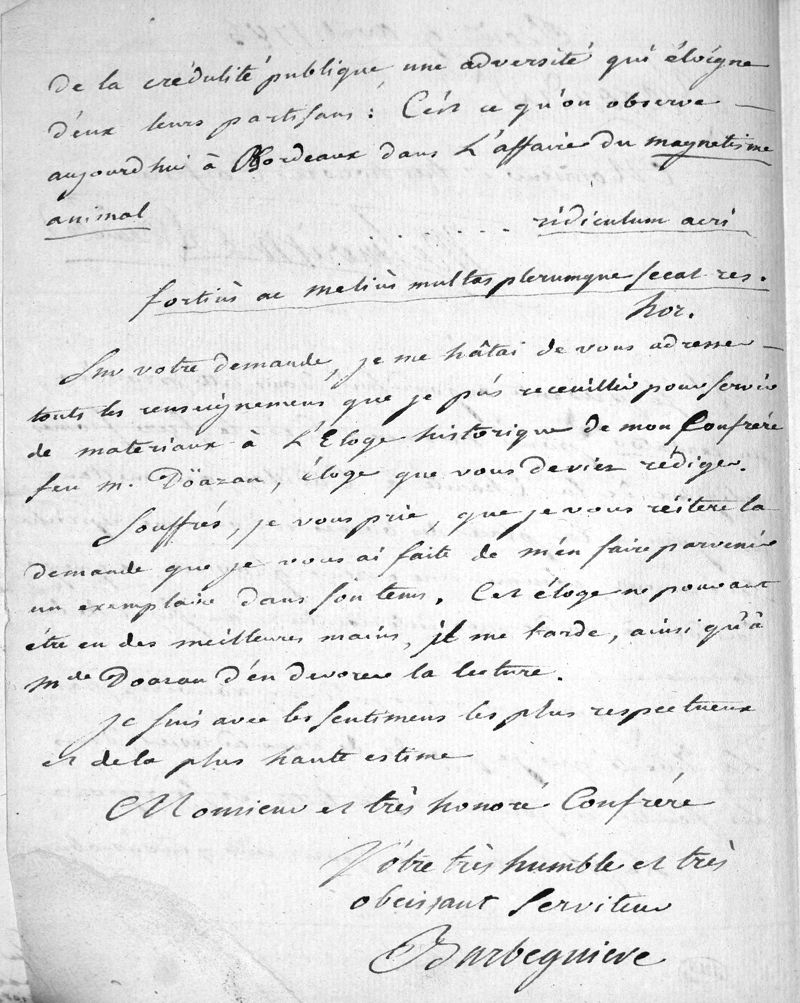 de la crédulité publique, une adversité qui éloigne
d'eux leurs partisans : C'est ce qu'on observe —
aujourdhui à Bordeaux dans L'affaire du magnetisme
animal . . . . . . ridiculum acri
fortiùs ac meliùs multas plerumque secat res.
hor.
Sur votre demande, je me hâtai de vous adresser —
touts les renseignemens que je pus receuillir pour servir
de materiaux à L'Eloge historique de mon Confrére
feu m. Döazan, éloge que vous deviez rédiger.
Souffrés, je vous prie, que je vous réitere la
demande que je vous ai faite de m'en faire parvenir
un exemplaire dans son tems. Cet éloge ne pouvant
être en des meilleures mains, il me tarde, ainsi qu'à
mde Doazan d'en devorer la lecture.
Je suis avec les sentimens les plus respectueux
et de la plus haute estime
Monsieur et très honoré Confréré
Vôtre très humble et très
obeissant Serviteur
Barbeguiere